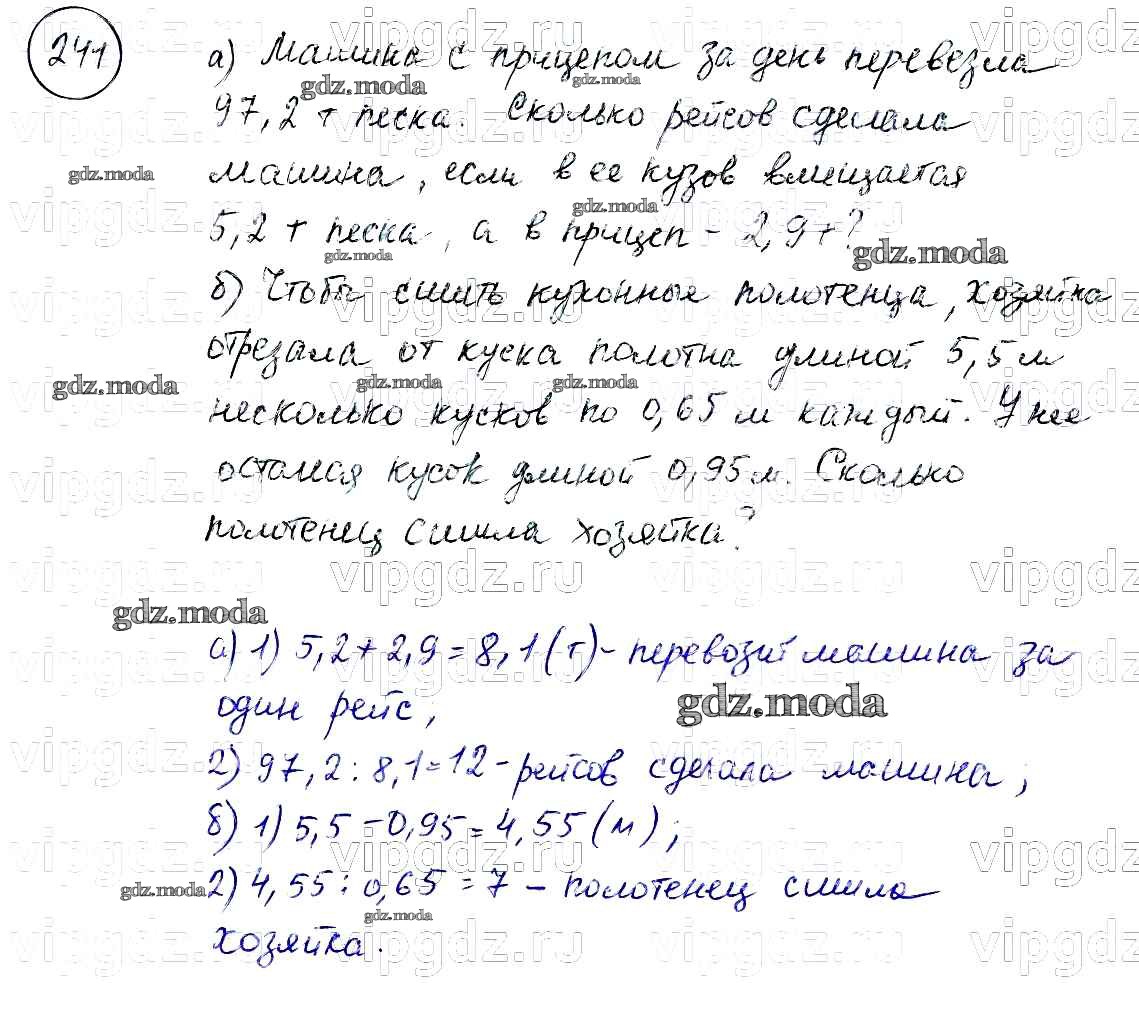 241
а) Машина с прицепом за день перевезла
97,2 т песка. Сколько рейсов сделала
машина, если в ее кузов вмещается
5,2 т песка, а в прицеп - 2,9 т?
б) Чтобы сшить кухонные полотенца, хозяйка
отрезала от куска полотна длиной 5,5 м
несколько кусков по 0,65 м каждый. У нее
остался кусок длиной 0,95 м. Сколько
полотенец сшила хозяйка?
а) 1) 5,2 + 2,9 = 8,1 (т) - перевозит машина за
один рейс;
2) 97,2 : 8,1 = 12 - рейсов сделала машина;
б) 1) 5,5 - 0,95 = 4,55 (м);
2) 4,55 : 0,65 = 7 - полотенец сшила
хозяйка.
gdz.moda
vipgdz.ru